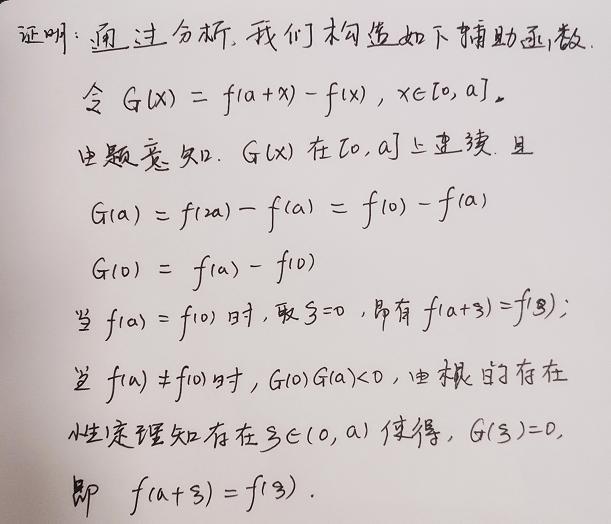 证明：通过分析，我们构造如下辅助函数.
令 G(x) = f(a+x) - f(x), x∈[0, a].
由题意知. G(x) 在 [0, a] 上连续. 且
G(a) = f(2a) - f(a) = f(0) - f(a)
G(0) = f(a) - f(0)
当 f(a) = f(0) 时, 取 ξ=0, 即有 f(a+ξ) = f(ξ);
当 f(a) ≠ f(0) 时, G(0)G(a)<0, 由根的存在
性定理知存在 ξ∈(0, a) 使得, G(ξ)=0,
即 f(a+ξ) = f(ξ).